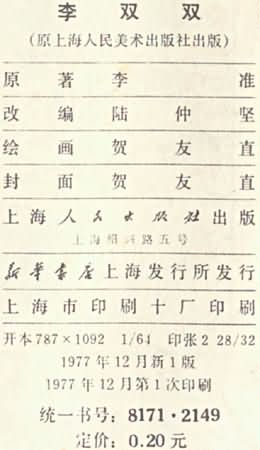 李双双
(原上海人民美术出版社出版)
原著 李准
改编 陆仲坚
绘画 贺友直
封面 贺友直
上海人民出版社出版
上海绍兴路五号
新华书店上海发行所发行
上海市印刷十厂印刷
开本787×1092 1/64 印张2 28/32
1977年12月新1版
1977年12月第1次印刷
统一书号：8171·2149
定价：0.20元